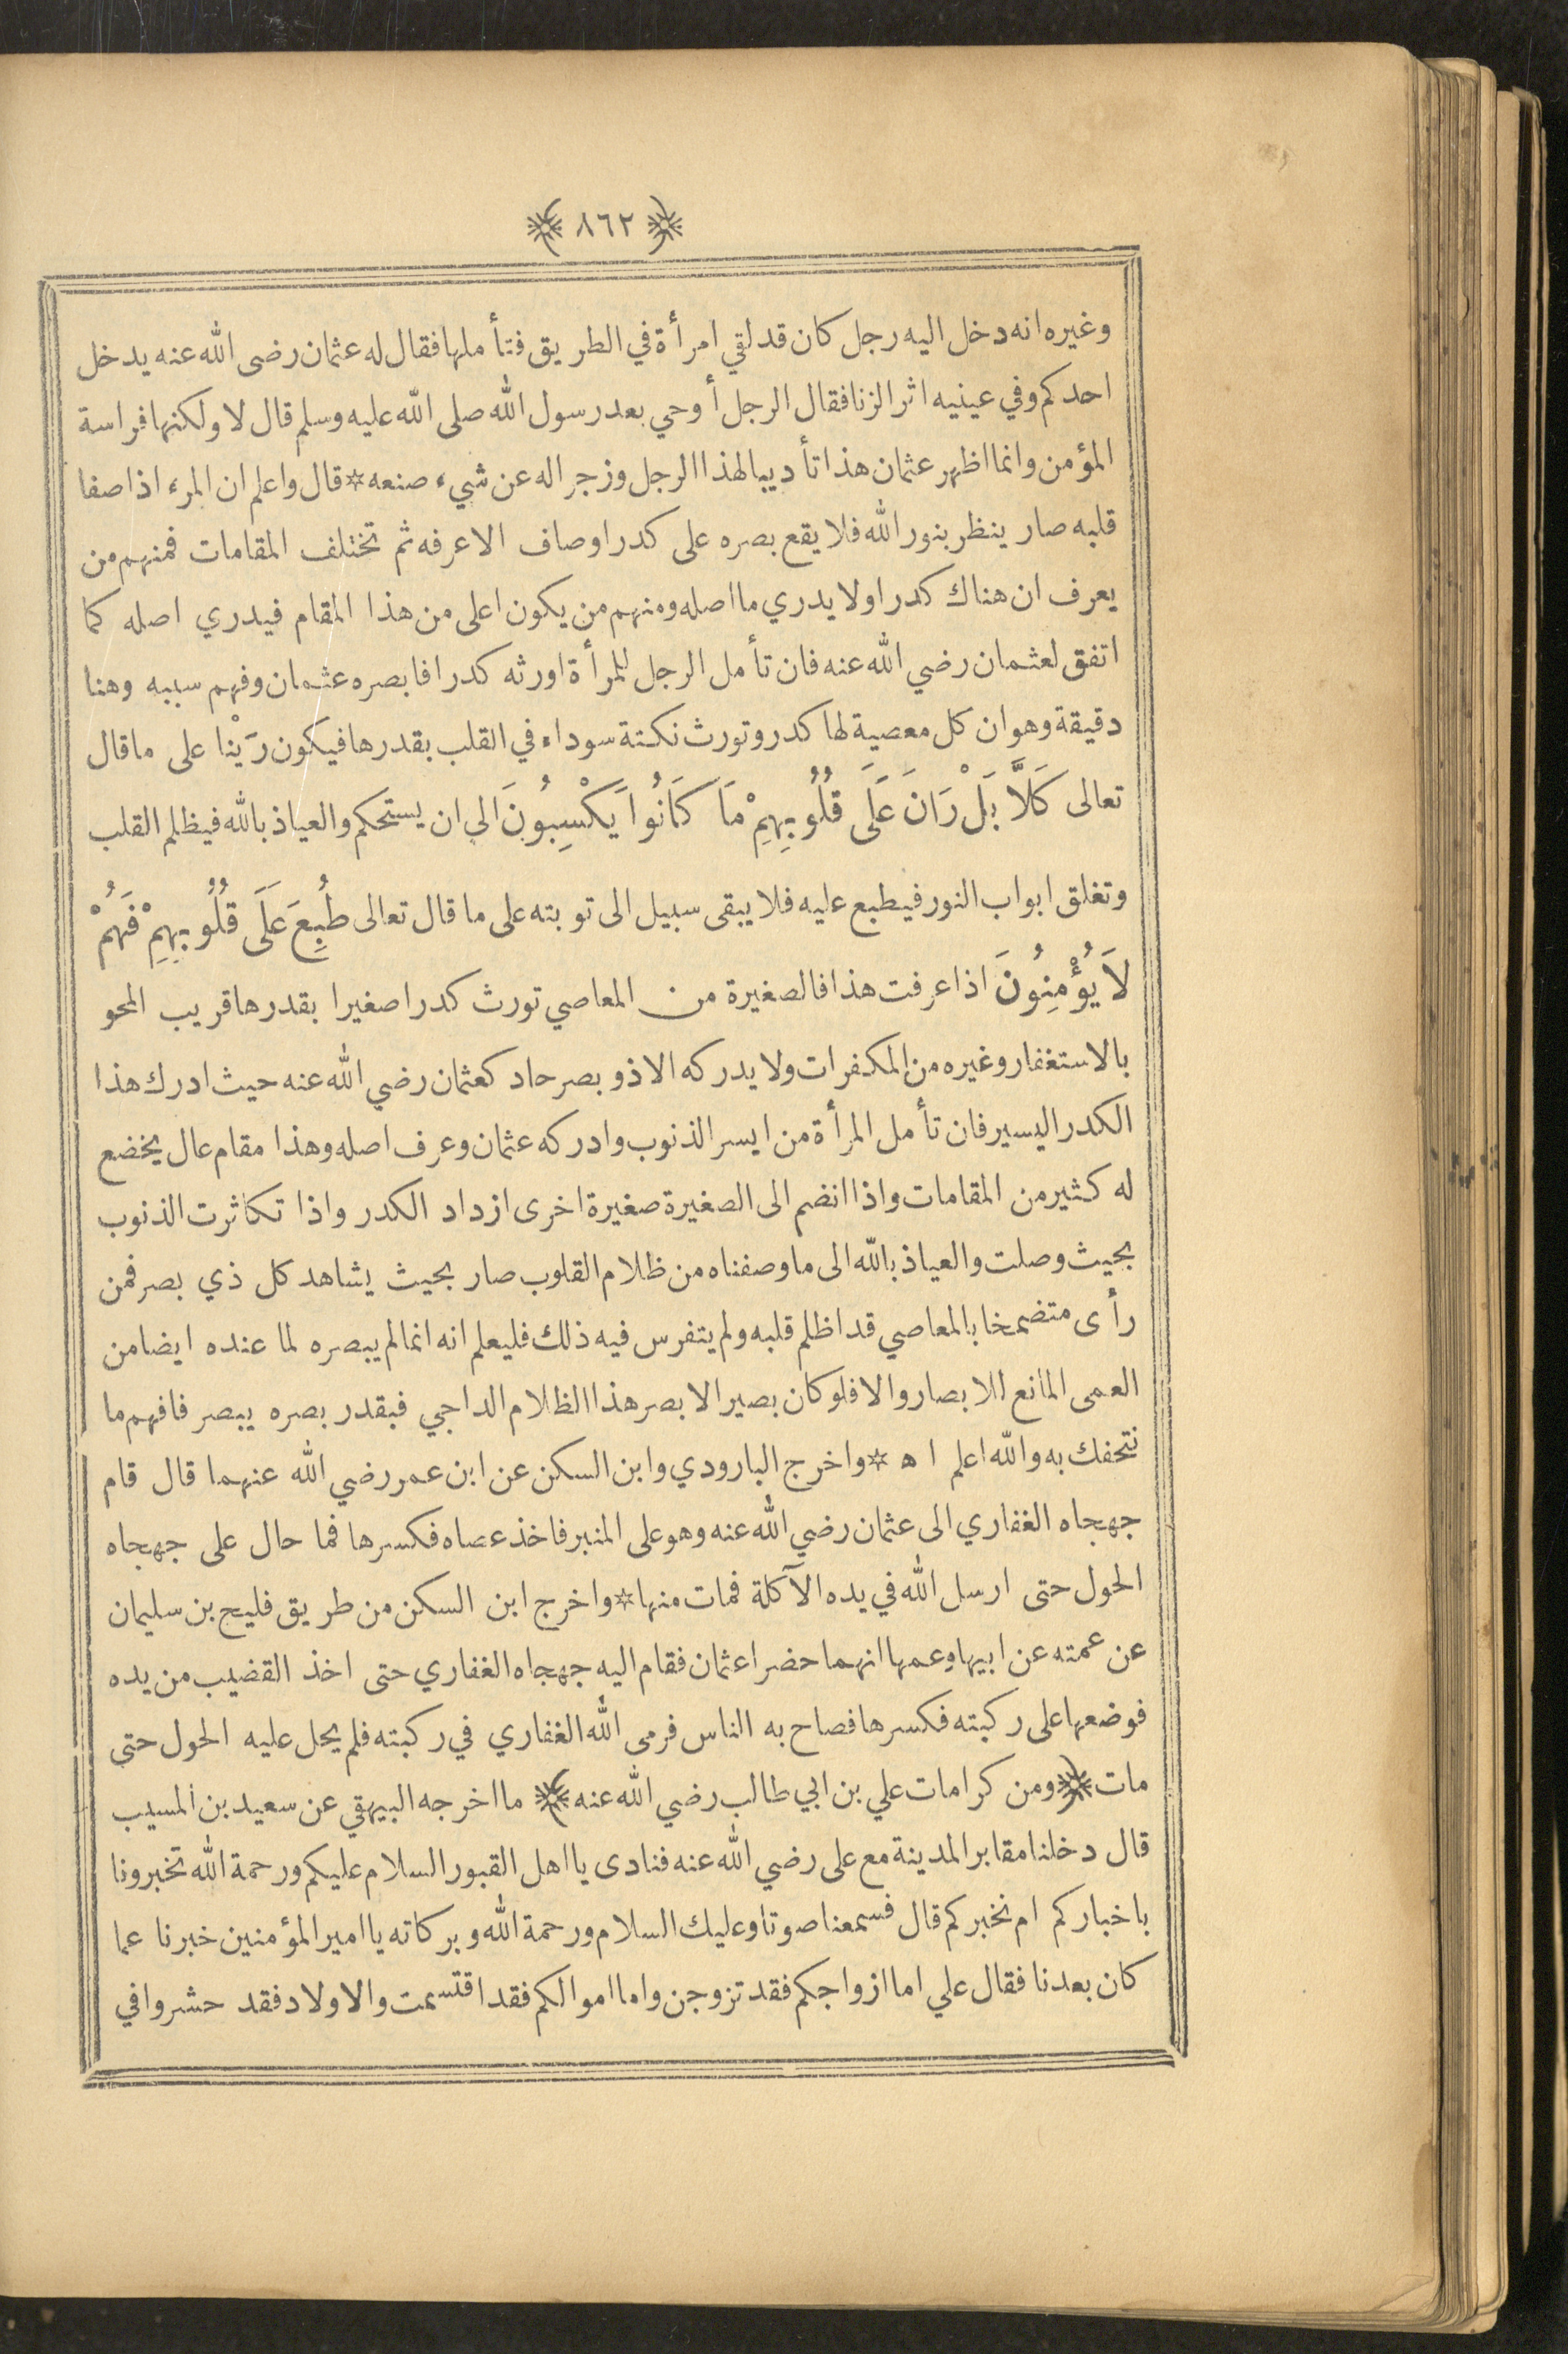 ٨٦٢
وغيره انه دخل اليه رجل كان قد لقي امرأة في الطريق فتأملها فقال له عثمان رضى الله عنه يدخل
احدكم وفي عينيه اثر الزنا فقال الرجل أوحي بعد رسول الله صلى الله عليه وسلم قال لا ولكنها فراسة
المؤمن وانما اظهر عثمان هذا تأديبا لهذا الرجل وزجرا له عن شيء صنعه * قال واعلم ان المرء اذا صفا
قلبه صار ينظر بنور الله فلا يقع بصره على كدر اوصاف الا عرفه ثم تختلف المقامات فمنهم من
يعرف ان هناك كدرا ولا يدري ما اصله ومنهم من يكون اعلى من هذا المقام فيدري اصله كما
اتفق لعثمان رضي الله عنه فان تأمل الرجل للمرأة اورثه كدرا فابصره عثمان وفهم سببه وهنا
دقيقة وهو ان كل معصية لها كدر وتورث نكتة سوداء في القلب بقدرها فيكون رَيْنا على ما قال
تعالى كَلاَّ بَلْ رَانَ عَلَى قُلُوبِهِمْ مَا كَانُوا يَكْسِبُونَ الى ان يستحكم والعياذ بالله فيظلم القلب
وتغلق ابواب النور فيطبع عليه فلا يبقى سبيل الى توبته على ما قال تعالى طُبِعَ عَلَى قُلُوبِهِمْ فَهُمْ
لاَ يُؤْمِنُونَ اذا عرفت هذا فالصغيرة من المعاصي تورث كدرا صغيرا بقدرها قريب المحو
بالاستغفار وغيره من المكفرات ولا يدركه الا ذو بصر حاد كعثمان رضي الله عنه حيث ادرك هذا
الكدر اليسير فان تأمل المرأة من ايسر الذنوب وادركه عثمان وعرف اصله وهذا مقام عال يخضع
له كثير من المقامات واذا انضم الى الصغيرة صغيرة اخرى ازداد الكدر واذا تكاثرت الذنوب
بحيث وصلت والعياذ بالله الى ما وصفناه من ظلام القلوب صار بحيث يشاهد كل ذي بصر فمن
رأى متضمخا بالمعاصي قد اظلم قلبه ولم يتفرس فيه ذلك فليعلم انه انما لم يبصره لما عنده ايضا من
العمى المانع للابصار والا فلو كان بصيرا لابصر هذا الظلام الداجي فبقدر بصره يبصر فافهم ما
نتحفك به والله اعلم ا ه * واخرج البارودي وابن السكن عن ابن عمر رضي الله عنهما قال قام
جهجاه الغفاري الى عثمان رضي الله عنه وهو على المنبر فاخذ عصاه فكسرها فما حال على جهجاه
الحول حتى ارسل الله في يده الآكلة فمات منها * واخرج ابن السكن من طريق فليح بن سليمان
عن عمته عن ابيها وعمها انهما حضرا عثمان فقام اليه جهجاه الغفاري حتى اخذ القضيب من يده
فوضعها على ركبته فكسرها فصاح به الناس فرمى الله الغفاري في ركبته فلم يحل عليه الحول حتى
مات ﴿ ومن كرامات علي بن ابي طالب رضي الله عنه ﴾ ما اخرجه البيهقي عن سعيد بن المسيب
قال دخلنا مقابر المدينة مع على رضي الله عنه فنادى يا اهل القبور السلام عليكم ورحمة الله تخبرونا
باخباركم ام نخبركم قال فسمعنا صوتا وعليك السلام ورحمة الله وبركاته يا امير المؤمنين خبرنا عما
كان بعدنا فقال علي اما ازواجكم فقد تزوجن واما اموالكم فقد اقتسمت والاولاد فقد حشروا في